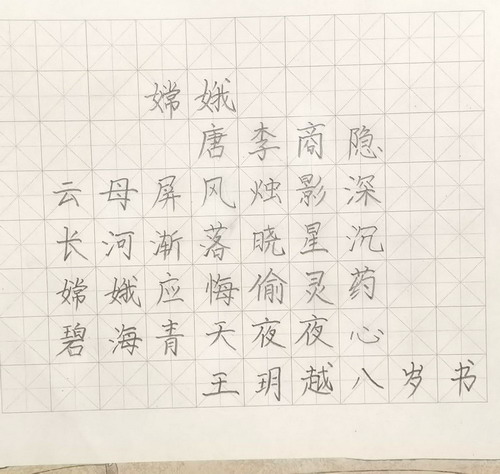 嫦娥
唐李商隐
云母屏风烛影深
长河渐落晓星沉
嫦娥应悔偷灵药
碧海青天夜夜心
王玥越八岁书